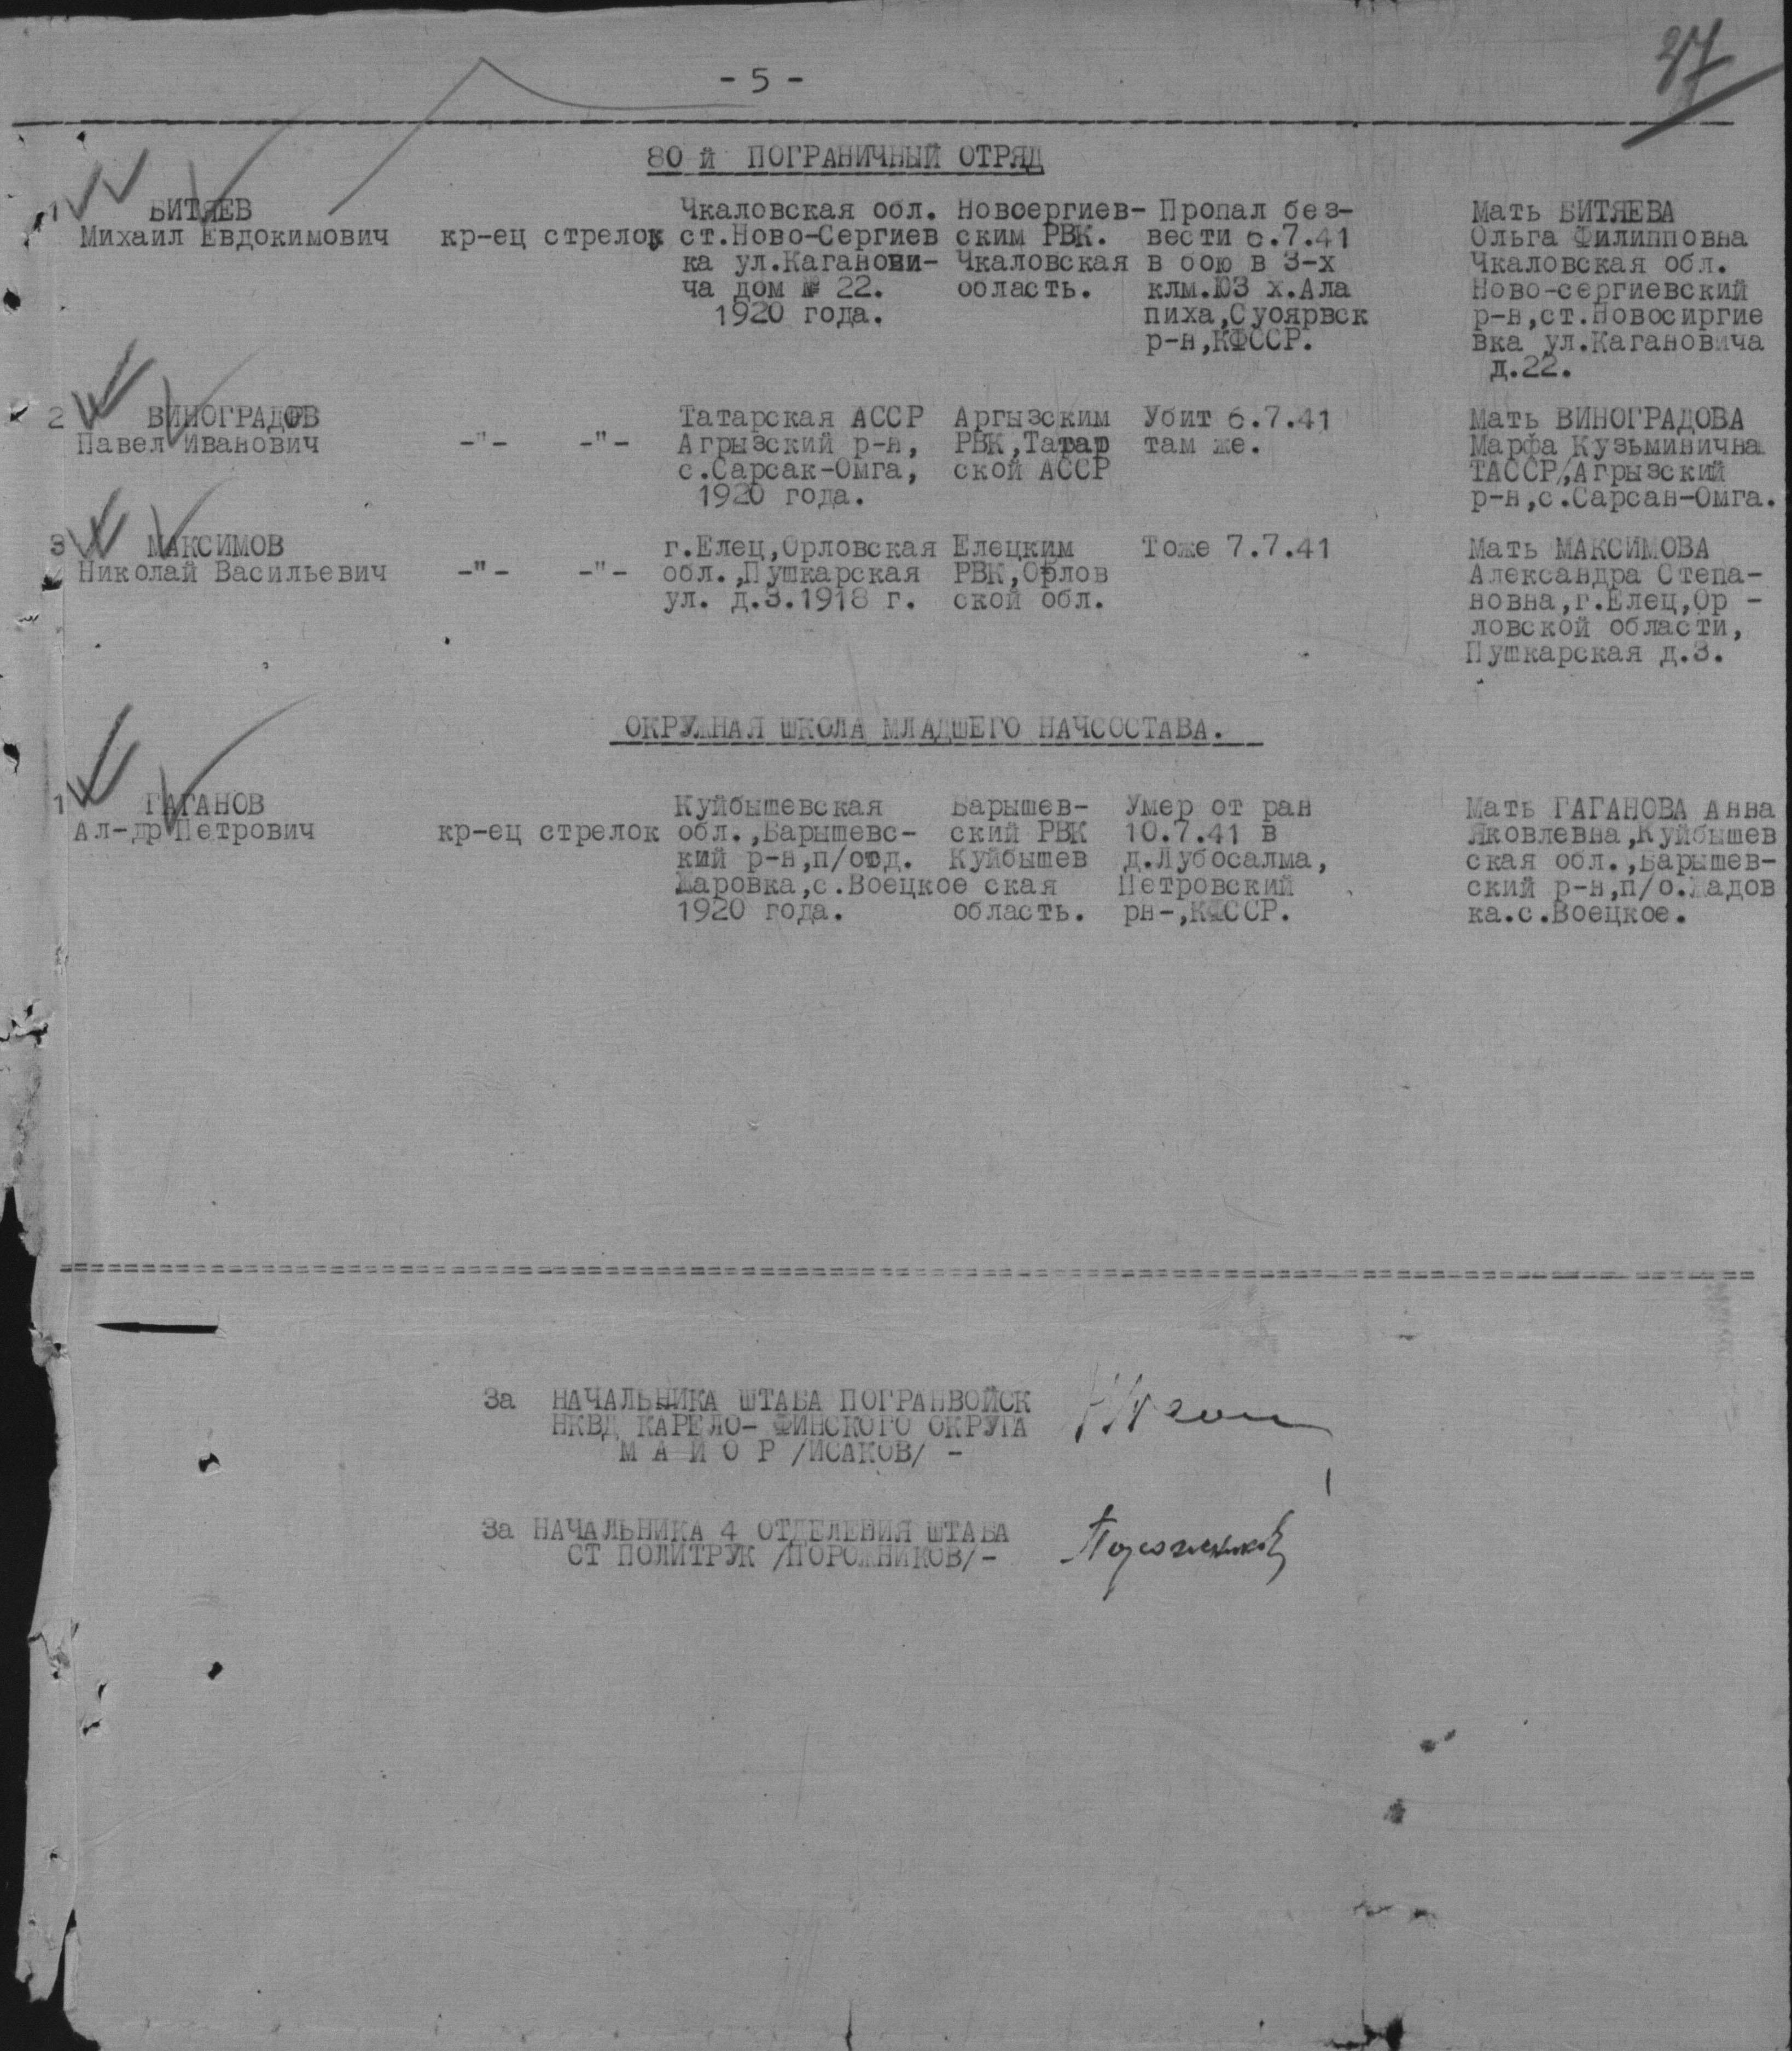 - 5 -
37
80 й ПОГРАНИЧНЫЙ ОТРЯД
1 БИТЯЕВ Чкаловская обл. Новоергиев- Пропал без- Мать БИТЯЕВА
Михаил Евдокимович кр-ец стрелок ст.Ново-Сергиев ским РВК. вести 6.7.41 Ольга Филипповна
ка ул.Каганови- Чкаловская в бою в 3-х Чкаловская обл.
ча дом № 22. область. клм.ЮЗ х.Ала Ново-сергиевский
1920 года. пиха,Суоярвск р-н,ст.Новосиргие
р-н,КФССР. вка ул.Кагановича
д.22.
2 ВИНОГРАДОВ Татарская АССР Аргызским Убит 6.7.41 Мать ВИНОГРАДОВА
Павел Иванович -"- -"- Агрызский р-н, РВК,Татар там же. Марфа Кузьминична
с.Сарсак-Омга, ской АССР ТАССР,Агрызский
1920 года. р-н,с.Сарсан-Омга.
3 МАКСИМОВ г.Елец,Орловская Елецким Тоже 7.7.41 Мать МАКСИМОВА
Николай Васильевич -"- -"- обл.,Пушкарская РВК,Орлов Александра Степа-
ул. д.3.1918 г. ской обл. новна,г.Елец,Ор -
ловской области,
Пушкарская д.3.
ОКРУЖНАЯ ШКОЛА МЛАДШЕГО НАЧСОСТАВА.
1 ГАГАНОВ Куйбышевская Барышев- Умер от ран Мать ГАГАНОВА Анна
Ал-др Петрович кр-ец стрелок обл.,Барышевс- ский РВК 10.7.41 в Яковлевна,Куйбышев
кий р-н,п/отд. Куйбышев д.Лубосалма, ская обл.,Барышев-
Жаровка,с.Воецкое ская Петровский ский р-н,п/о.Жадов
1920 года. область. рн-,КФССР. ка.с.Воецкое.
За НАЧАЛЬНИКА ШТАБА ПОГРАНВОЙСК
НКВД КАРЕЛО- ФИНСКОГО ОКРУГА
М А Й О Р /ИСАКОВ/ -
За НАЧАЛЬНИКА 4 ОТДЕЛЕНИЯ ШТАБА
СТ ПОЛИТРУК /ПОРОЖНИКОВ/-